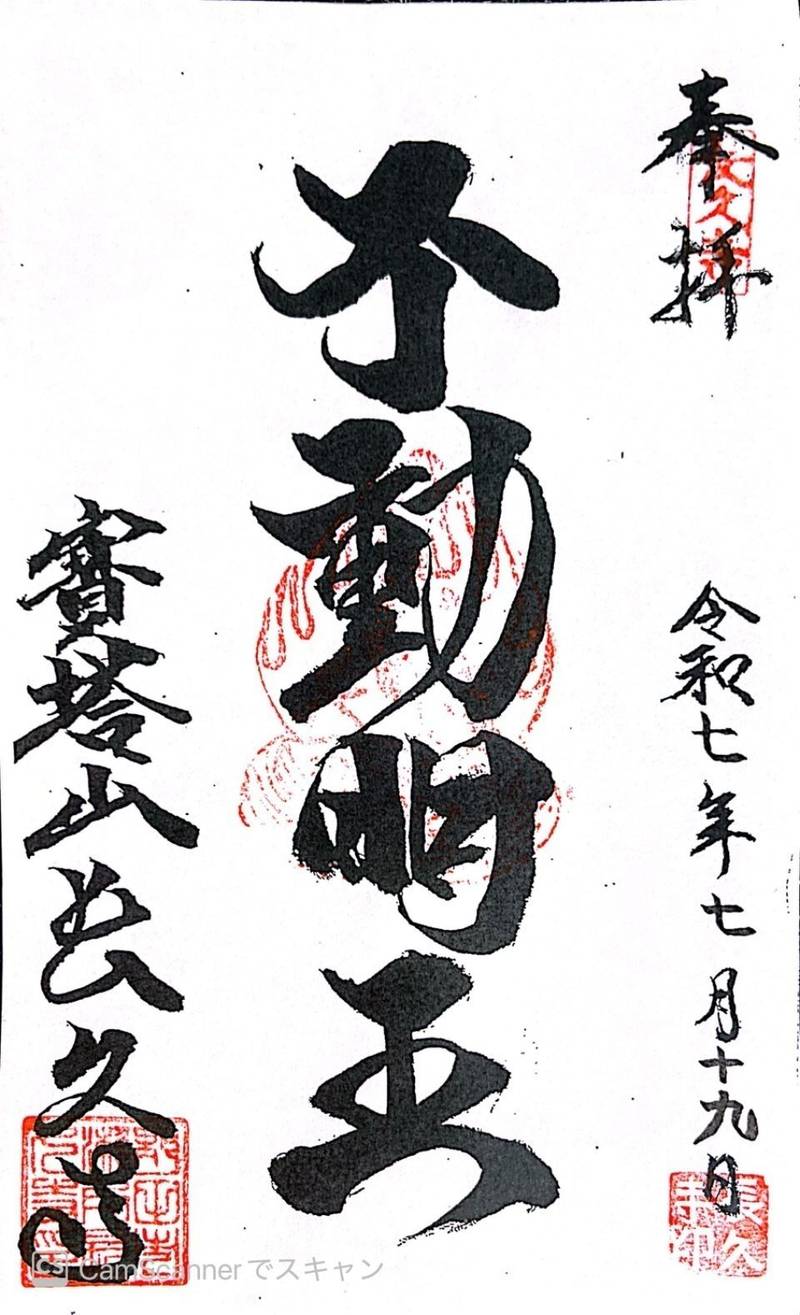 奉拝
令和七年七月十九日
不動明王
寶塔山長久寺
CS CamScannerでスキャン